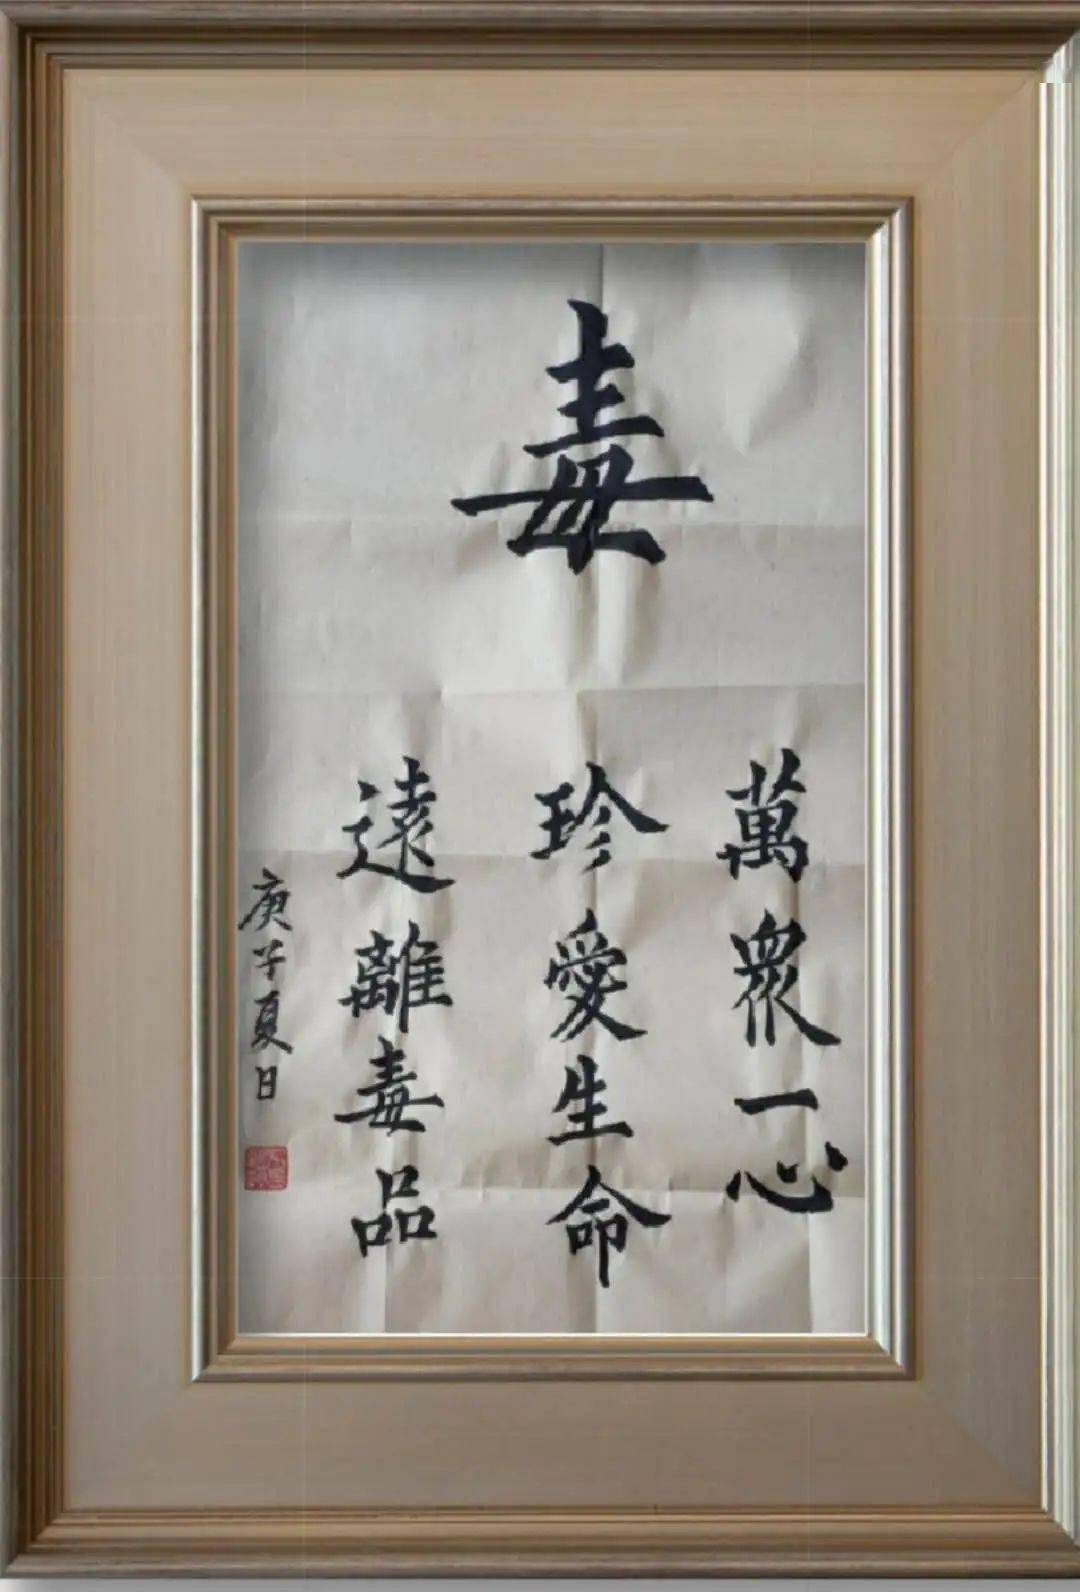 毒
萬眾一心
珍愛生命
遠離毒品
庚子夏日